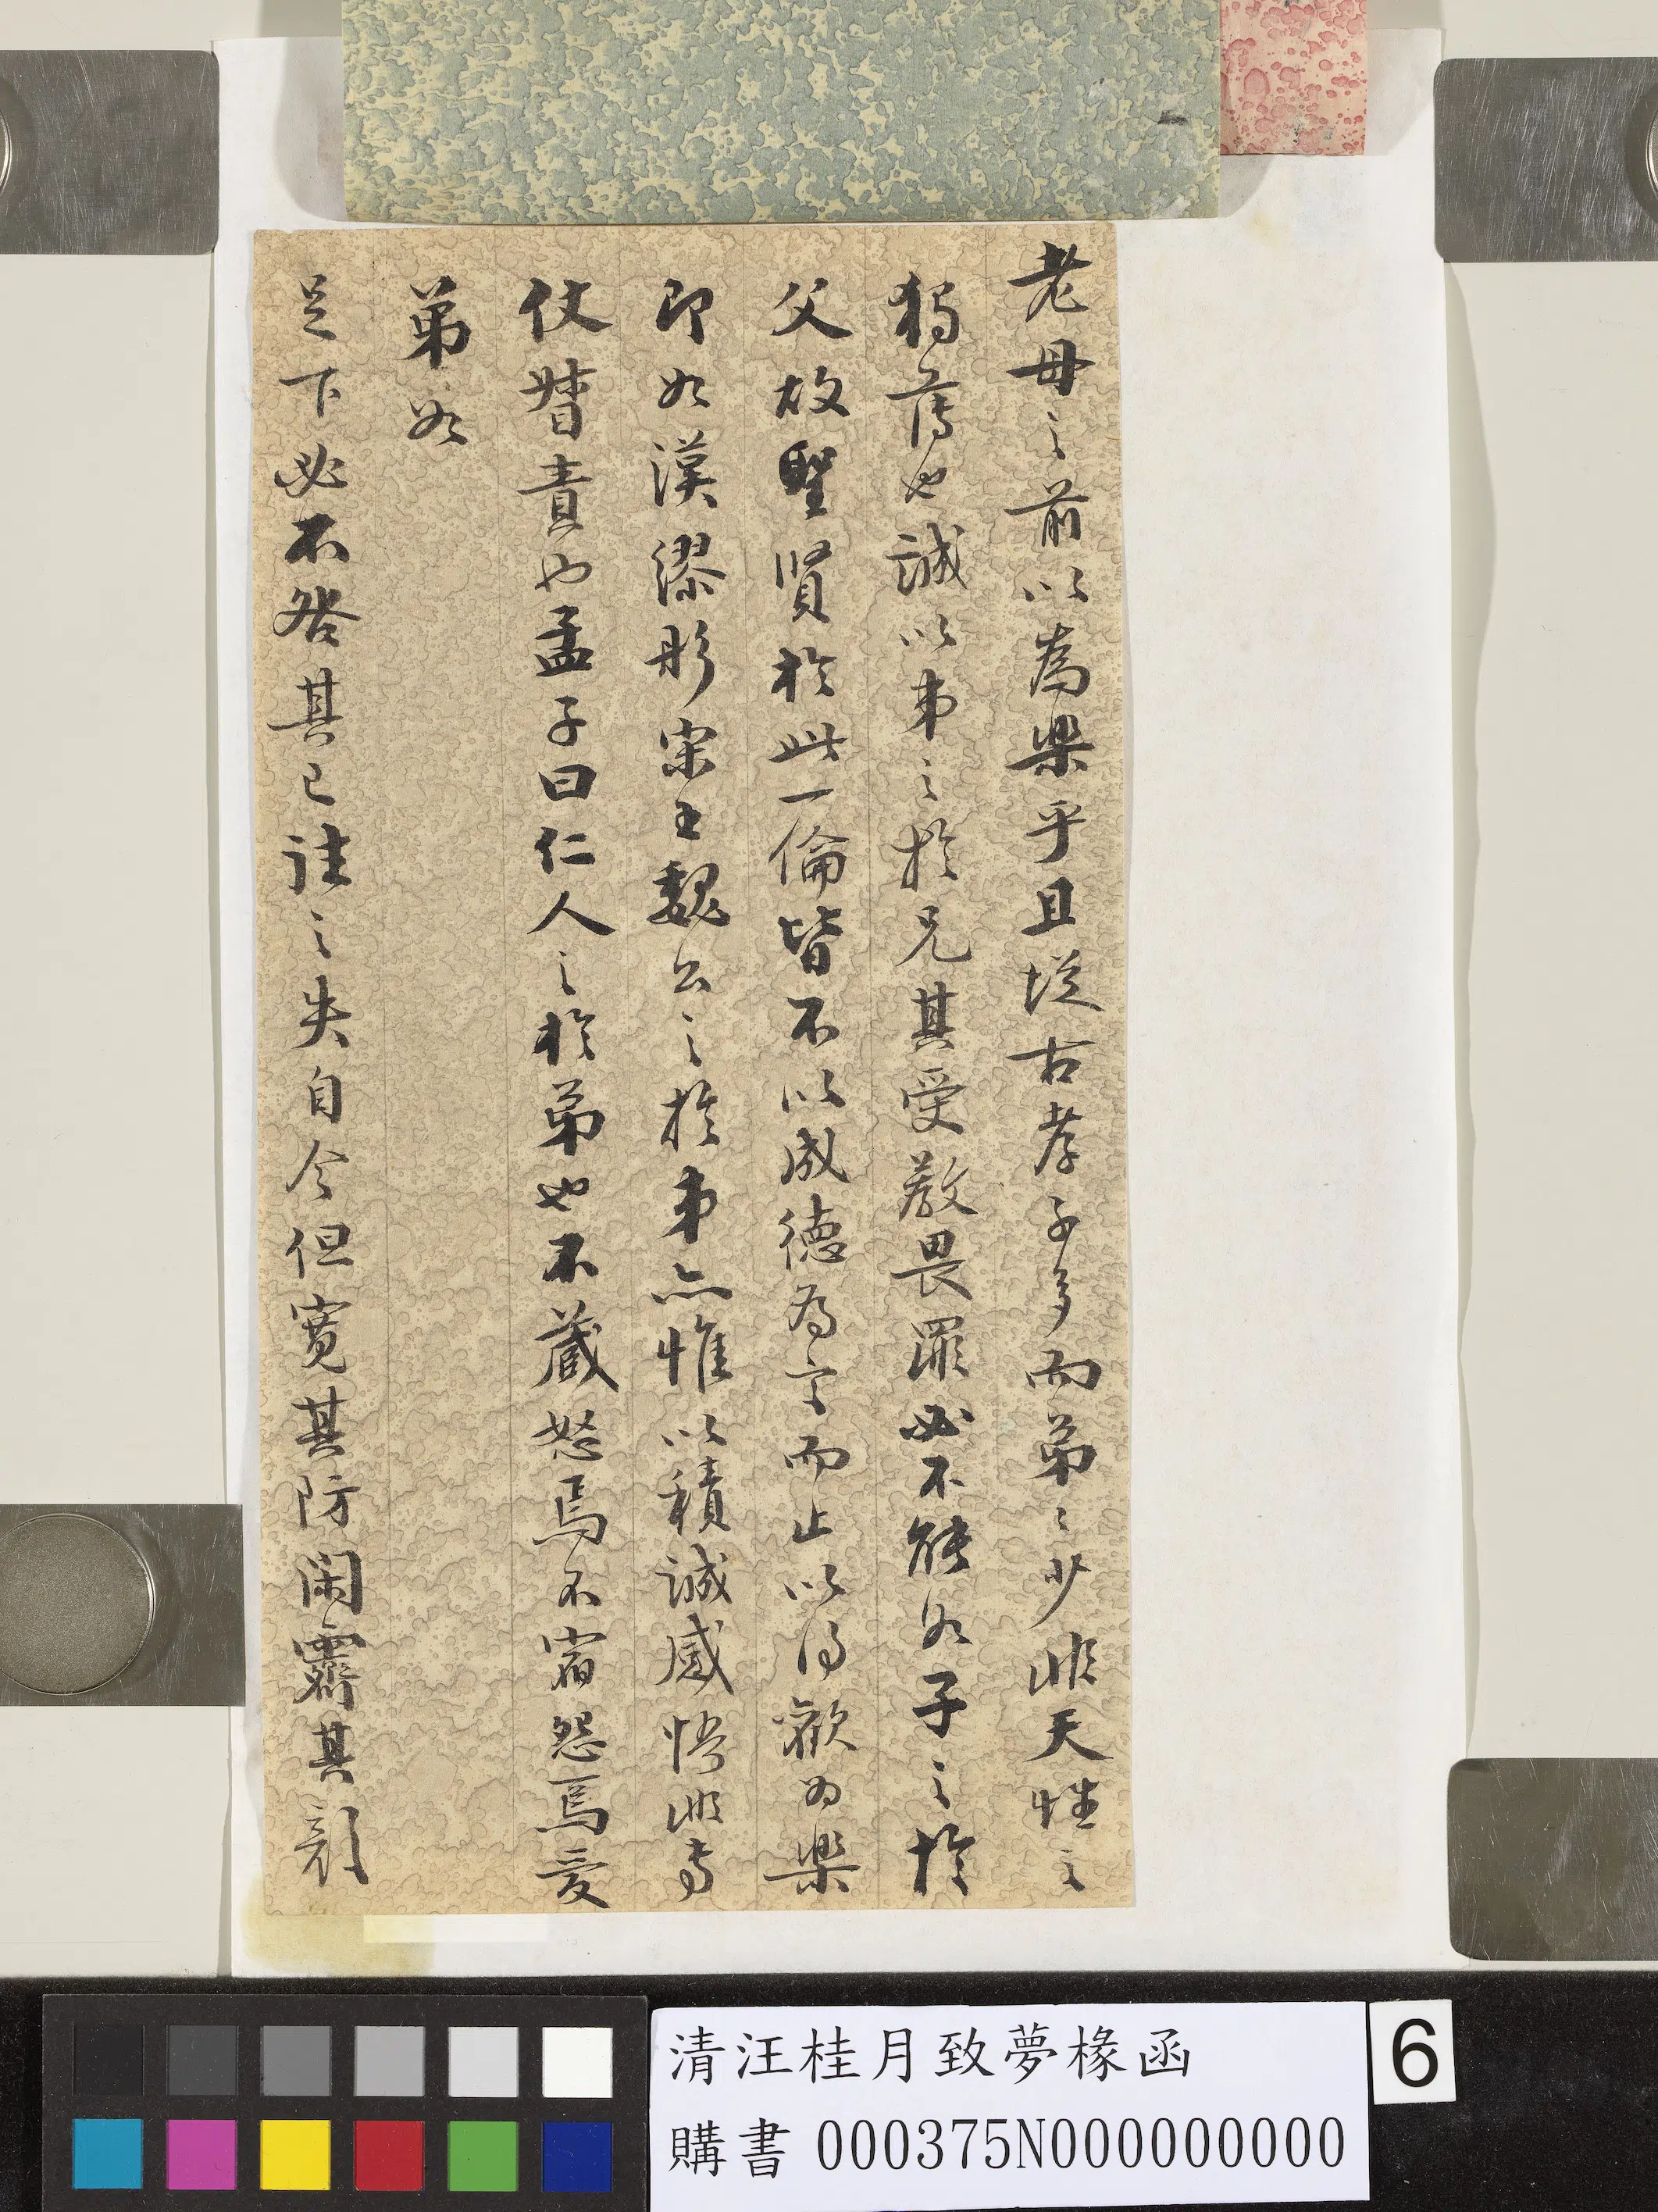 老母之前以為樂乎且從古孝子多而弟弟少非天性之
獨薄也誠以弟之於兄其受教畏罪必不能如子之於
父故聖賢於此一倫皆不以成德為言而止以得歡為樂
即如漢繆彤宋王魏公之於弟亦惟以積誠感悟非專
仗督責也孟子曰仁人之於弟也不藏怒焉不宿怨焉愛
弟如
足下必不咎其已往之失自今但寬其防閑霽其顏
清汪桂月致夢椽函
購書 000375N000000000
6